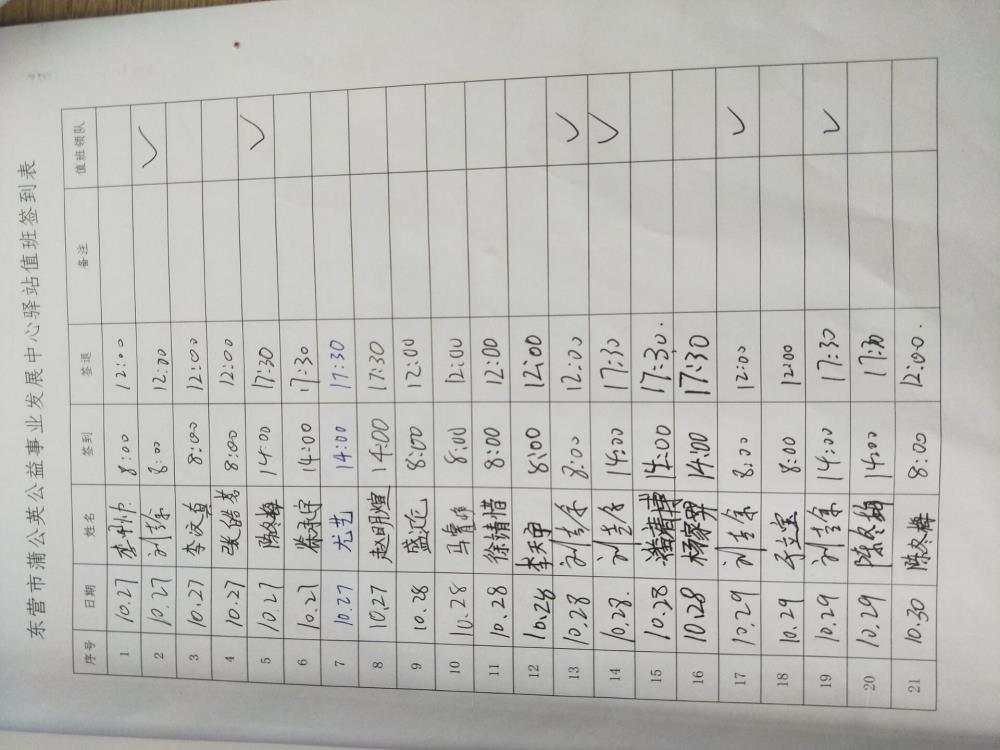 东营市蒲公英公益事业发展中心驿站值班签到表
序号 日期 姓名 签到 签退 备注 值班领队
1 10.27 8:00 12:00
2 10.27 8:00 12:00 ✓
3 10.27 8:00 12:00
4 10.27 8:00 12:00
5 10.27 陈冬梅 14:00 17:30 ✓
6 10.27 14:00 17:30
7 10.27 尤艺 14:00 17:30
8 10.27 赵明煊 14:00 17:30
9 10.28 8:00 12:00
10 10.28 8:00 12:00
11 10.28 徐靖惜 8:00 12:00
12 10.28 李天宇 8:00 12:00
13 10.28 8:00 12:00 ✓
14 10.28. 14:00 17:30 ✓
15 10.28 14:00 17:30.
16 10.28 14:00 17:30
17 10.29 8:00 12:00 ✓
18 10.29 8:00 12:00
19 10.29 14:00 17:30 ✓
20 10.29 14:00 17:30
21 10.30 陈冬梅 8:00 12:00.